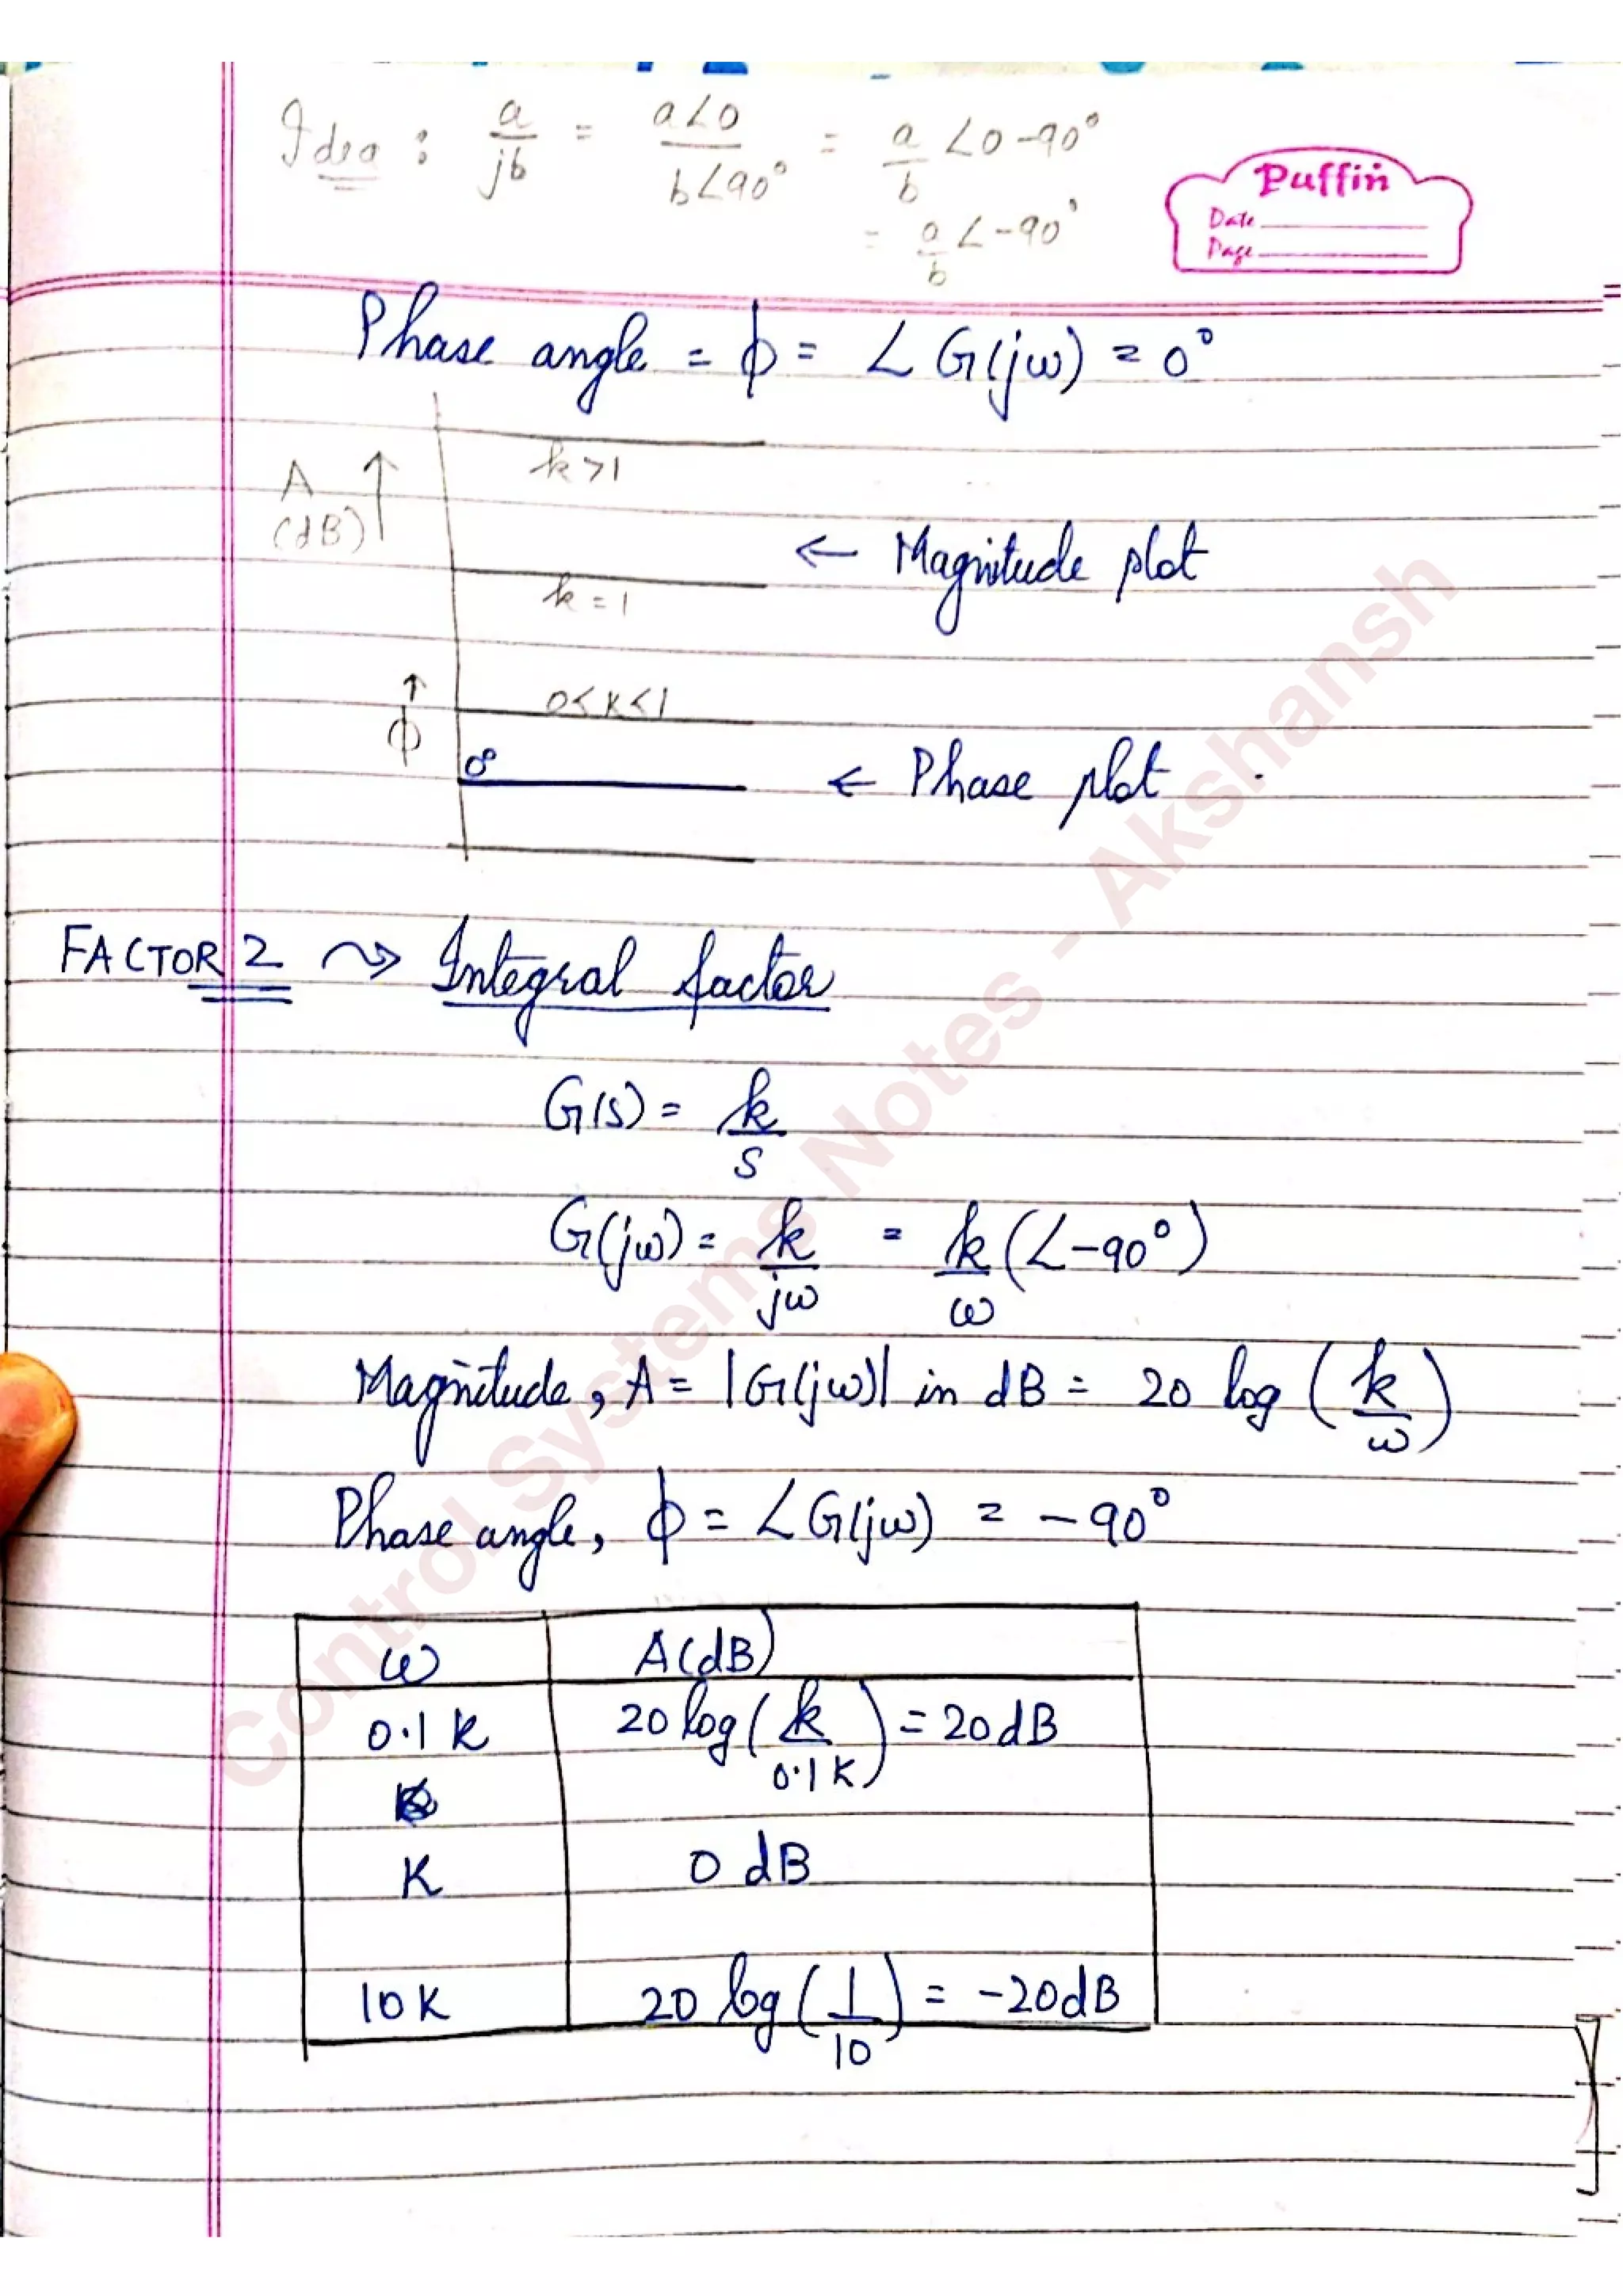 Idea : a/jb = a∠0/b∠90° = a/b ∠0-90°
= a/b ∠-90°
Puffin
Date
Page
Phase angle = ϕ = ∠ G(jω) = 0°
k>1
A ↑
(dB)
← Magnitude plot
k=1
↑
ϕ
0<k<1
0°
← Phase plot
FACTOR 2 ⤳ Integral factor
G(s) = k/s
G(jω) = k/jω = k/ω (∠-90°)
Magnitude, A = |G(jω)| in dB = 20 log (k/ω)
Phase angle, ϕ = ∠G(jω) = -90°
ω A(dB)
0.1 K 20 log(k/0.1K) = 20dB
K 0 dB
10K 20 log(1/10) = -20dB
Control Systems Notes - Akshansh